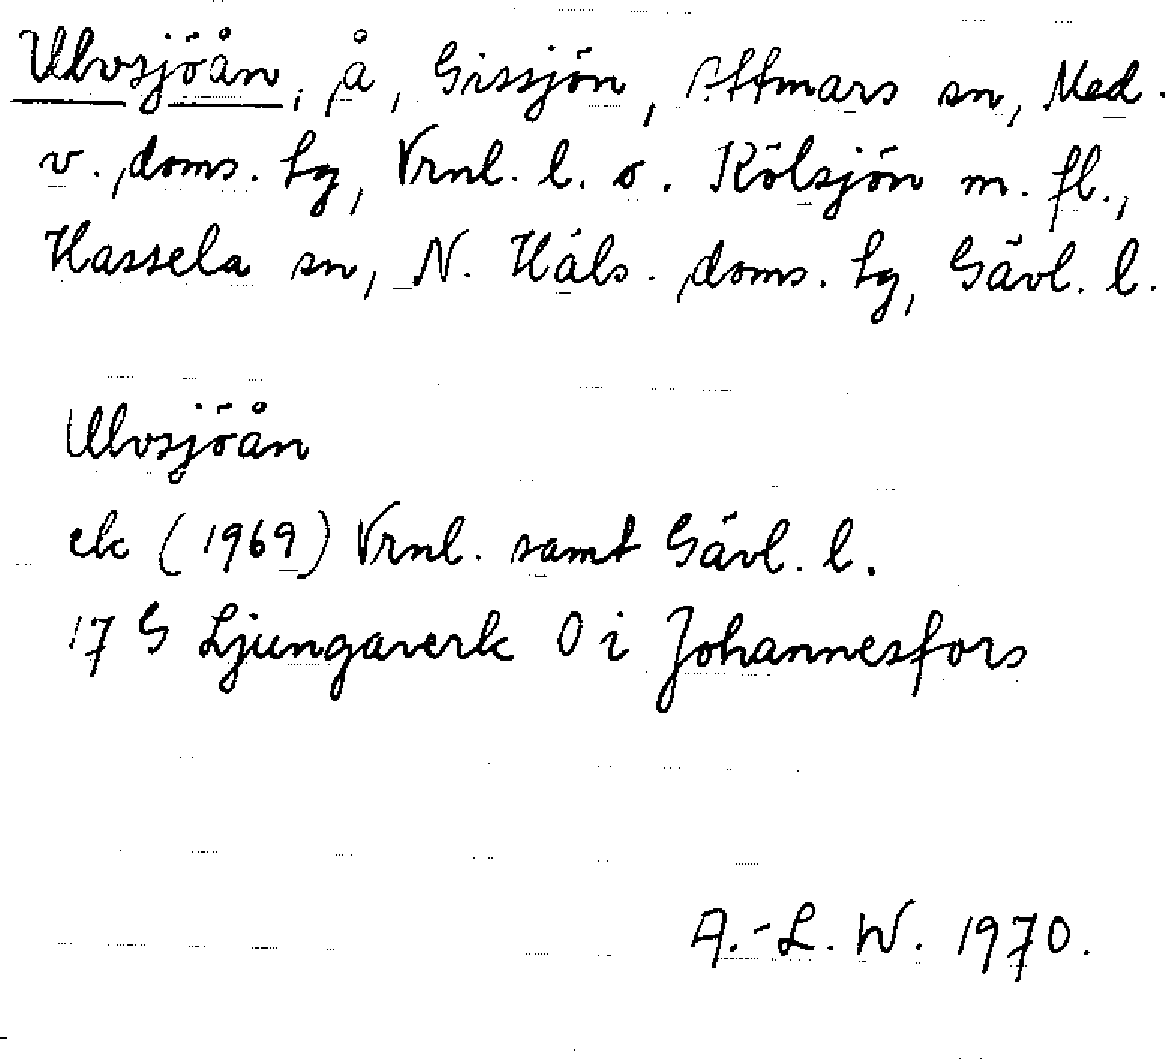 Ulvsjöån, å, Gissjön, Attmars sn, Med.
v. doms. hg, Vrnl. l. o. Kölsjön m. fl.,
Hassela sn, N. Häls. doms. hg, Gävl. l.
Ulvsjöån
ek (1969) Vrnl. samt Gävl. l.
17 G Ljungaverk 0 i Johannesfors
A.-L. W. 1970.